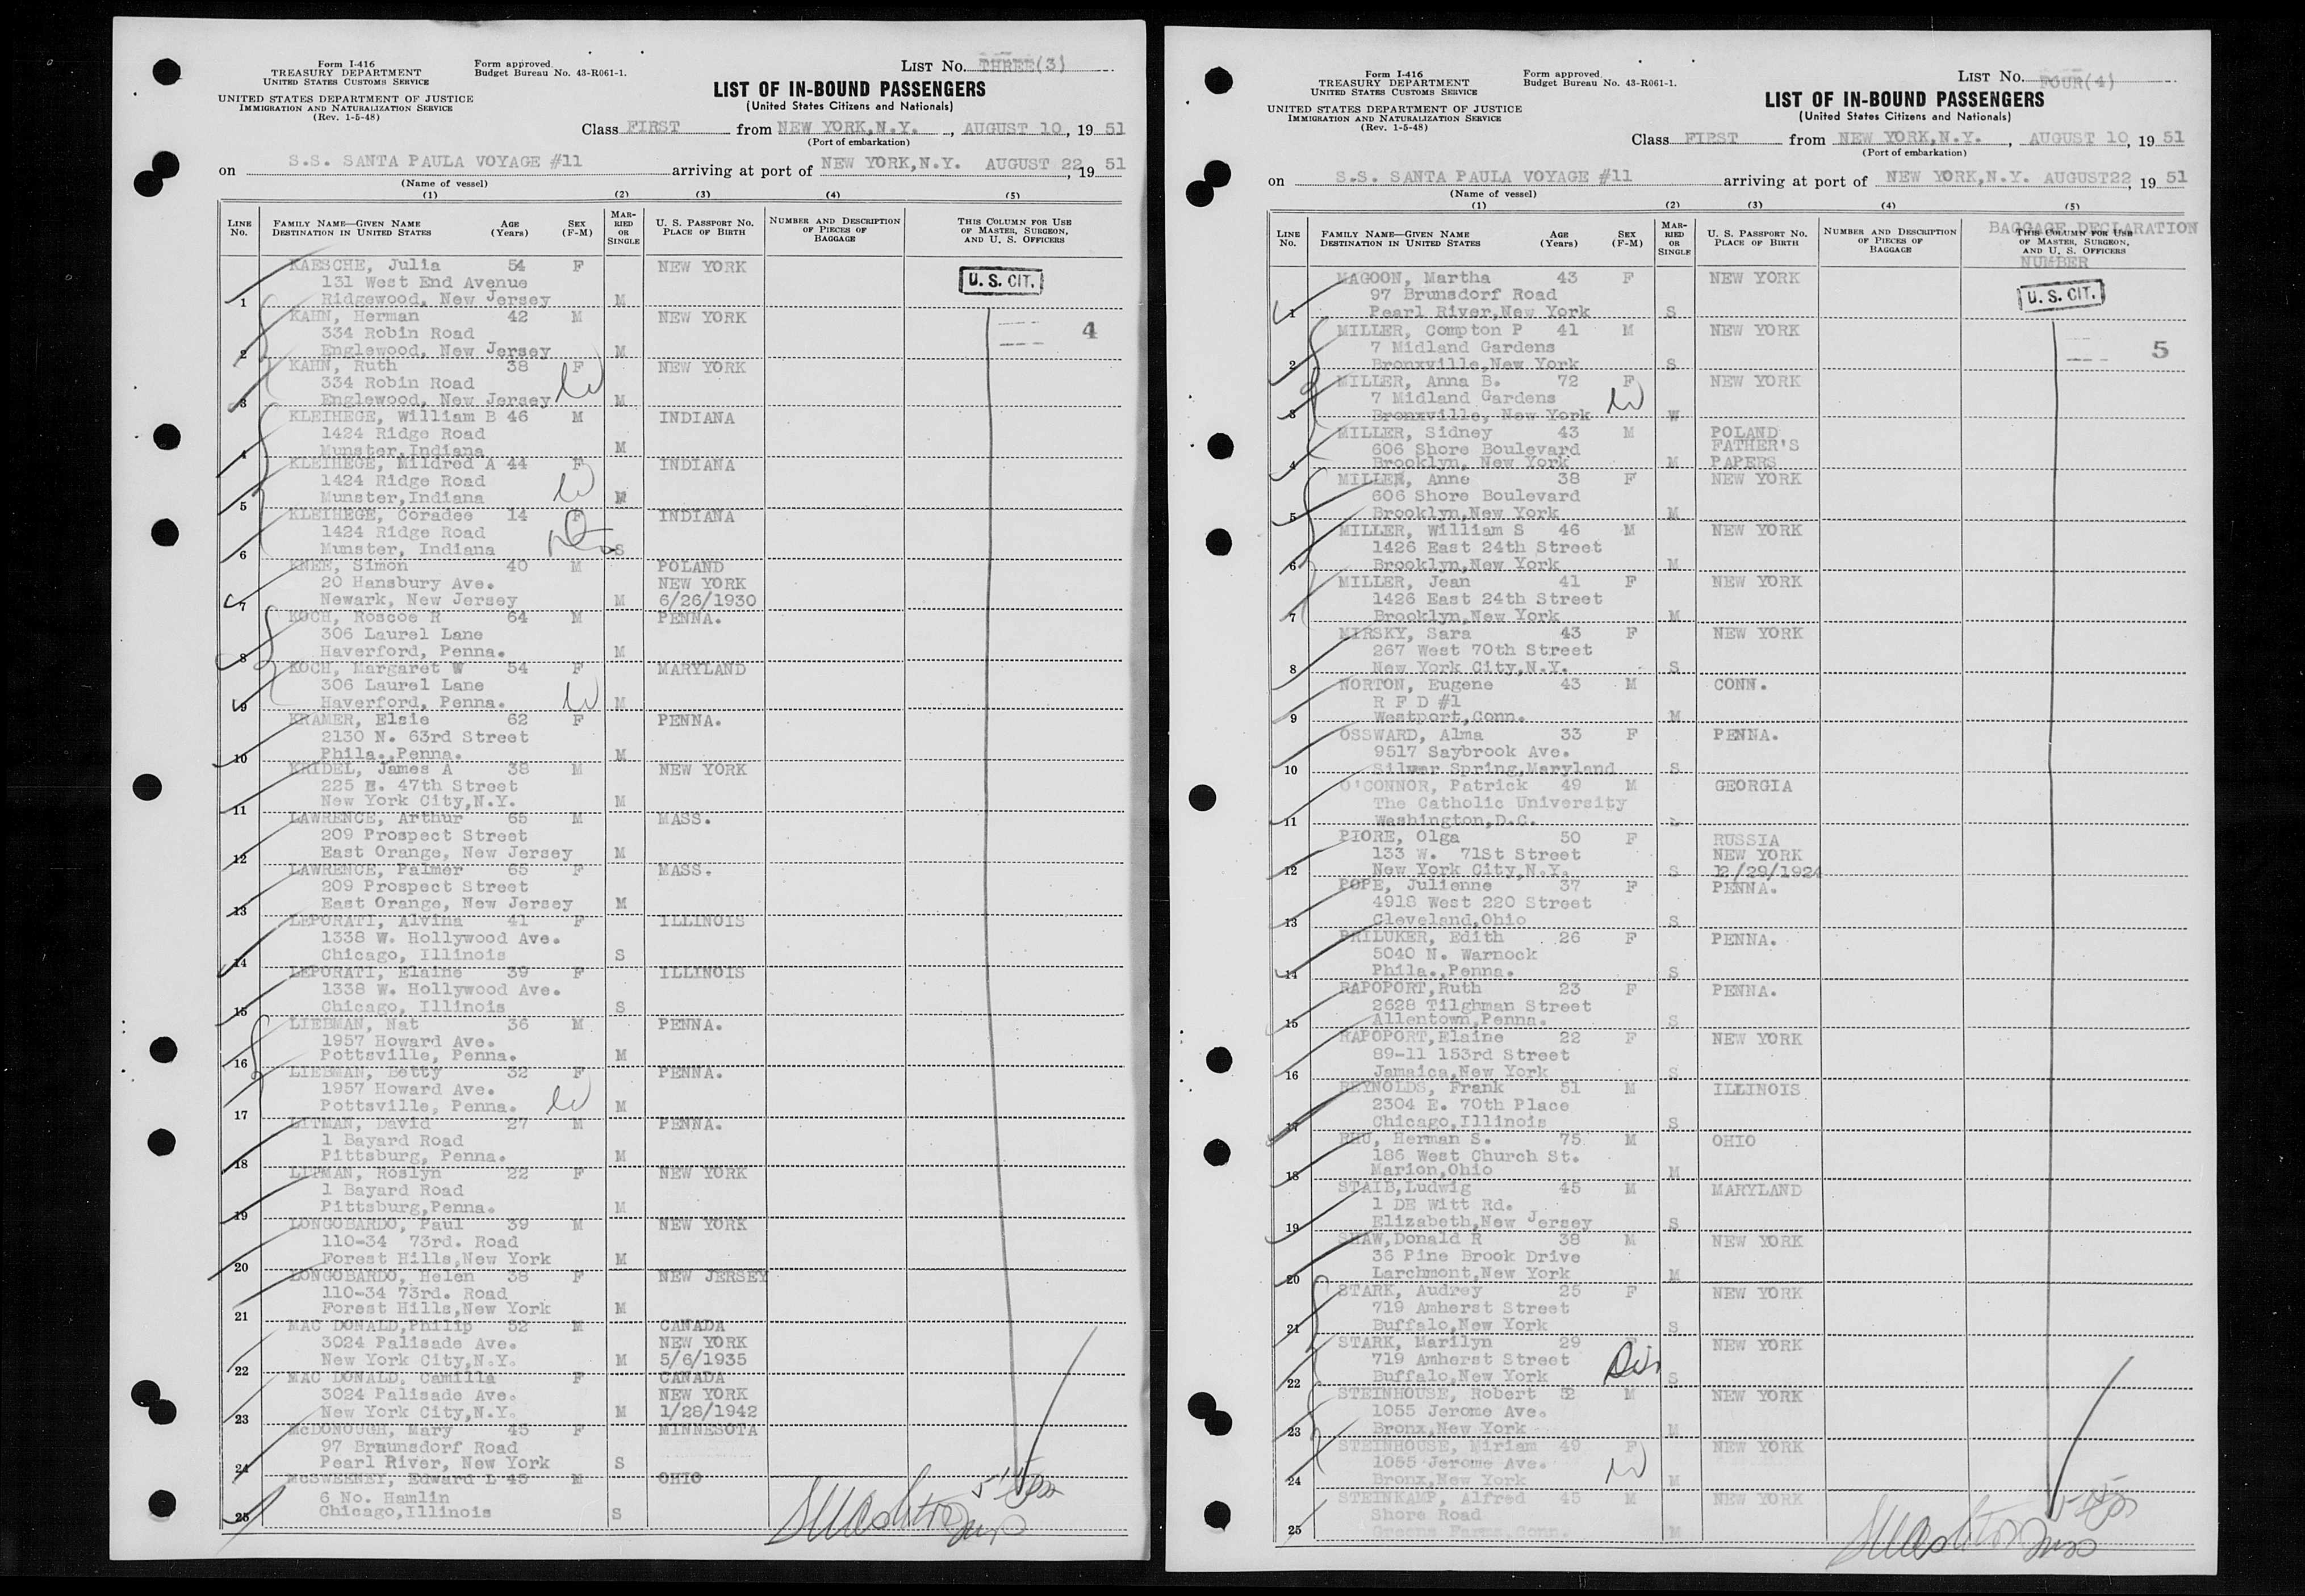 Form I-416
TREASURY DEPARTMENT
UNITED STATES CUSTOMS SERVICE
UNITED STATES DEPARTMENT OF JUSTICE
IMMIGRATION AND NATURALIZATION SERVICE
(Rev. 1-5-48)
Form approved.
Budget Bureau No. 43-R061-1.
LIST No. THREE(3)
LIST OF IN-BOUND PASSENGERS
(United States Citizens and Nationals)
Class FIRST from NEW YORK,N.Y. , AUGUST 10, 19 51
(Port of embarkation)
on S.S. SANTA PAULA VOYAGE #11 arriving at port of NEW YORK,N.Y. AUGUST 22, 19 51
(Name of vessel)
(1) (2) (3) (4) (5)
LINE No. FAMILY NAME—GIVEN NAME DESTINATION IN UNITED STATES AGE (Years) SEX (F-M) MARRIED OR SINGLE U. S. PASSPORT No. PLACE OF BIRTH NUMBER AND DESCRIPTION OF PIECES OF BAGGAGE THIS COLUMN FOR USE OF MASTER, SURGEON, AND U. S. OFFICERS
KAESCHE, Julia 54 F NEW YORK
131 West End Avenue U. S. CIT.
1 Ridgewood, New Jersey M
KAHN, Herman 42 M NEW YORK
334 Robin Road 4
2 Englewood, New Jersey M
KAHN, Ruth 38 F NEW YORK
334 Robin Road
3 Englewood, New Jersey M
KLEIHEGE, William B 46 M INDIANA
1424 Ridge Road
4 Munster,Indiana M
KLEIHEGE, Mildred A 44 F INDIANA
1424 Ridge Road
5 Munster,Indiana M
KLEIHEGE, Coradee 14 F INDIANA
1424 Ridge Road
6 Munster, Indiana S
KNEE, Simon 40 M POLAND
20 Hansbury Ave. NEW YORK
7 Newark, New Jersey M 6/26/1930
KOCH, Roscoe R 64 M PENNA.
306 Laurel Lane
8 Haverford, Penna. M
KOCH, Margaret W 54 F MARYLAND
306 Laurel Lane
9 Haverford, Penna. M
KRAMER, Elsie 62 F PENNA.
2130 N. 63rd Street
10 Phila.,Penna. M
KRIDEL, James A 38 M NEW YORK
225 E. 47th Street
11 New York City,N.Y. M
LAWRENCE, Arthur 65 M MASS.
209 Prospect Street
12 East Orange, New Jersey M
LAWRENCE, Palmer 65 F MASS.
209 Prospect Street
13 East Orange, New Jersey M
LEPORATI, Alvina 41 F ILLINOIS
1338 W. Hollywood Ave.
14 Chicago, Illinois S
LEPORATI, Elaine 39 F ILLINOIS
1338 W. Hollywood Ave.
15 Chicago, Illinois S
LIEBMAN, Nat 36 M PENNA.
1957 Howard Ave.
16 Pottsville, Penna. M
LIEBMAN, Betty 32 F PENNA.
1957 Howard Ave.
17 Pottsville, Penna. M
LITMAN, David 27 M PENNA.
1 Bayard Road
18 Pittsburg, Penna. M
LITMAN, Roslyn 22 F NEW YORK
1 Bayard Road
19 Pittsburg,Penna. M
LONGOBARDO, Paul 39 M NEW YORK
110-34 73rd. Road
20 Forest Hills,New York M
LONGOBARDO, Helen 38 F NEW JERSEY
110-34 73rd. Road
21 Forest Hills,New York M
MAC DONALD,Philip 52 M CANADA
3024 Palisade Ave. NEW YORK
22 New York City,N.Y. M 5/6/1935
MAC DONALD, Camilla F CANADA
3024 Palisade Ave. NEW YORK
23 New York City,N.Y. M 1/28/1942
McDONOUGH, Mary 45 F MINNESOTA
97 Braunsdorf Road
24 Pearl River, New York S
McSWEENEY, Edward L 45 M OHIO
6 No. Hamlin
25 Chicago,Illinois S
Form I-416
TREASURY DEPARTMENT
UNITED STATES CUSTOMS SERVICE
UNITED STATES DEPARTMENT OF JUSTICE
IMMIGRATION AND NATURALIZATION SERVICE
(Rev. 1-5-48)
Form approved.
Budget Bureau No. 43-R061-1.
LIST No. FOUR(4)
LIST OF IN-BOUND PASSENGERS
(United States Citizens and Nationals)
Class FIRST from NEW YORK,N.Y. , AUGUST 10, 19 51
(Port of embarkation)
on S.S. SANTA PAULA VOYAGE #11 arriving at port of NEW YORK,N.Y. AUGUST22, 19 51
(Name of vessel)
(1) (2) (3) (4) (5)
LINE No. FAMILY NAME—GIVEN NAME DESTINATION IN UNITED STATES AGE (Years) SEX (F-M) MARRIED OR SINGLE U. S. PASSPORT No. PLACE OF BIRTH NUMBER AND DESCRIPTION OF PIECES OF BAGGAGE THIS COLUMN FOR USE OF MASTER, SURGEON, AND U. S. OFFICERS
BAGGAGE DECLARATION
NUMBER
MAGOON, Martha 43 F NEW YORK
97 Brunsdorf Road U. S. CIT.
1 Pearl River,New York S
MILLER, Compton P 41 M NEW YORK
7 Midland Gardens 5
2 Bronxville,New York S
MILLER, Anna B. 72 F NEW YORK
7 Midland Gardens
3 Bronxville, New York W
MILLER, Sidney 43 M POLAND
606 Shore Boulevard FATHER'S
4 Brooklyn, New York M PAPERS
MILLER, Anne 38 F NEW YORK
606 Shore Boulevard
5 Brooklyn,New York M
MILLER, William S 46 M NEW YORK
1426 East 24th Street
6 Brooklyn,New York M
MILLER, Jean 41 F NEW YORK
1426 East 24th Street
7 Brooklyn,New York M
MIRSKY, Sara 43 F NEW YORK
267 West 70th Street
8 New York City,N.Y. S
NORTON, Eugene 43 M CONN.
R F D #1
9 Westport,Conn. M
OSSWARD, Alma 33 F PENNA.
9517 Saybrook Ave.
10 Silver Spring,Maryland S
O'CONNOR, Patrick 49 M GEORGIA
The Catholic University
11 Washington,D.C. S
PIORE, Olga 50 F RUSSIA
133 W. 71St Street NEW YORK
12 New York City,N.Y. S 12/29/1924
POPE, Julienne 37 F PENNA.
4918 West 220 Street
13 Cleveland,Ohio S
PRILUKER, Edith 26 F PENNA.
5040 N. Warnock
14 Phila.,Penna. S
RAPOPORT,Ruth 23 F PENNA.
2628 Tilghman Street
15 Allentown,Penna. S
RAPOPORT,Elaine 22 F NEW YORK
89-11 153rd Street
16 Jamaica,New York S
REYNOLDS, Frank 51 M ILLINOIS
2304 E. 70th Place
17 Chicago,Illinois S
RHU, Herman S. 75 M OHIO
186 West Church St.
18 Marion,Ohio M
STAIB,Ludwig 45 M MARYLAND
1 DE Witt Rd.
19 Elizabeth,New Jersey S
SHAW,Donald R 38 M NEW YORK
36 Pine Brook Drive
20 Larchmont,New York M
STARK, Audrey 25 F NEW YORK
719 Amherst Street
21 Buffalo,New York S
STARK, Marilyn 29 F NEW YORK
719 Amherst Street
22 Buffalo,New York S
STEINHOUSE, Robert 52 M NEW YORK
1055 Jerome Ave.
23 Bronx,New York M
STEINHOUSE, Miriam 49 F NEW YORK
1055 Jerome Ave.
24 Bronx,New York M
STEINKAMP, Alfred 45 M NEW YORK
Shore Road
25 Greens Farms,Conn. M